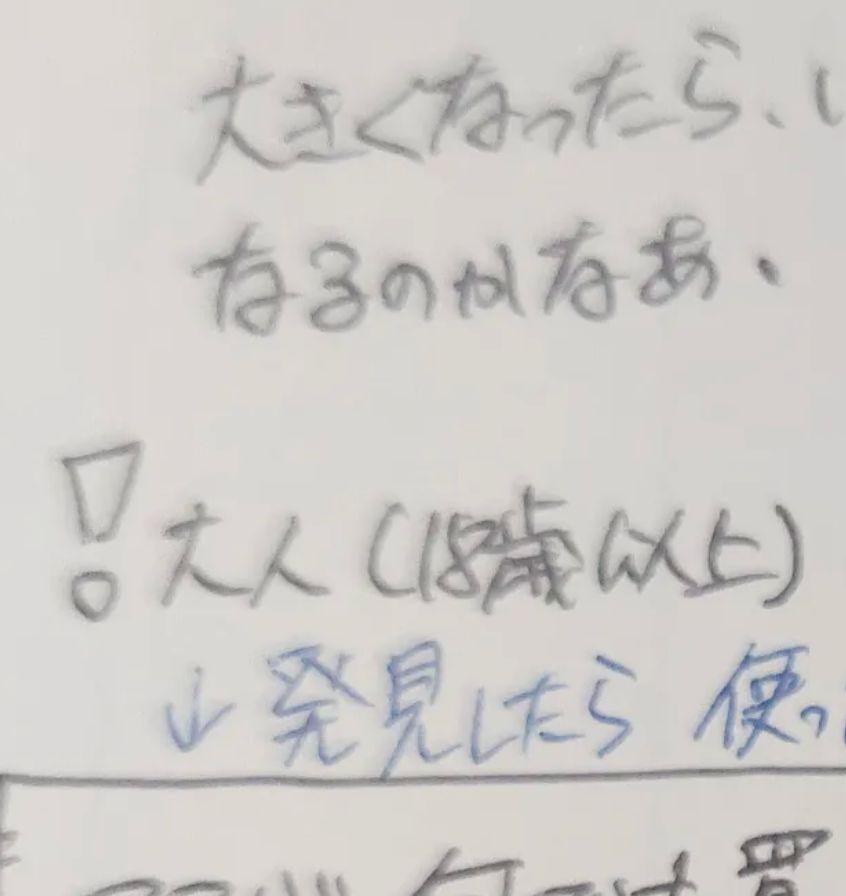 大きくなったら、
なるのかなあ、
! 大人(18歳以上)
↓発見したら 使っ